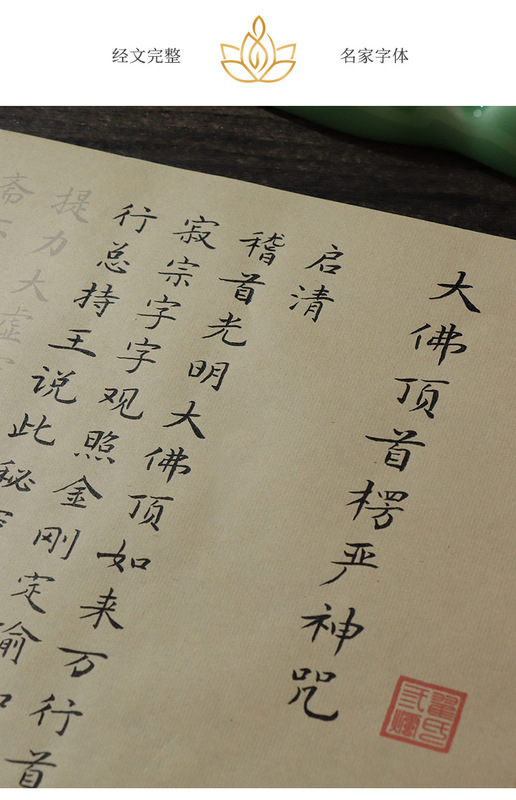 经文完整
名家字体
大佛顶首楞严神咒
启清
稽首光明大佛顶如来万行首
寂宗字字观照金刚定
行总持王说此秘
提力大虚
斋